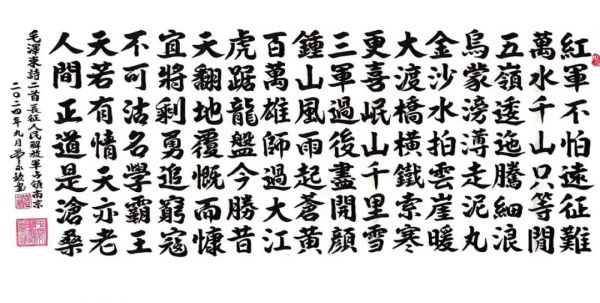 紅軍不怕遠征難
萬水千山只等閒
五嶺逶迤騰細浪
烏蒙滂溥走泥丸
金沙水拍雲崖暖
大渡橋橫鐵索寒
更喜岷山千里雪
三軍過後盡開顏
鍾山風雨起蒼黃
百萬雄師過大江
虎踞龍盤今勝昔
天翻地覆慨而慷
宜將剩勇追窮寇
不可沽名學霸王
天若有情天亦老
人間正道是滄桑
毛澤東詩二首長征人民解放軍占領南京
二〇二四年九月